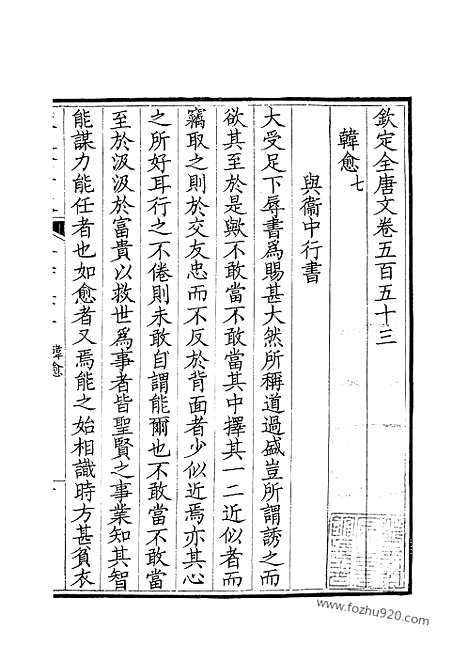 欽定全唐文卷五百五十三
韓愈七
與衞中行書
大受足下辱書爲賜甚大然所稱道過盛豈所謂誘之而
欲其至於是歟不敢當不敢當其中擇其一二近似者而
竊取之則於交友忠而不反於背面者少似近焉亦其心
之所好耳行之不倦則未敢自謂能爾也不敢當不敢當
至於汲汲於富貴以救世爲事者皆聖賢之事業知其智
能謀力能任者也如愈者又焉能之始相識時方甚貧衣
韓愈
一
www.fozhu920.com